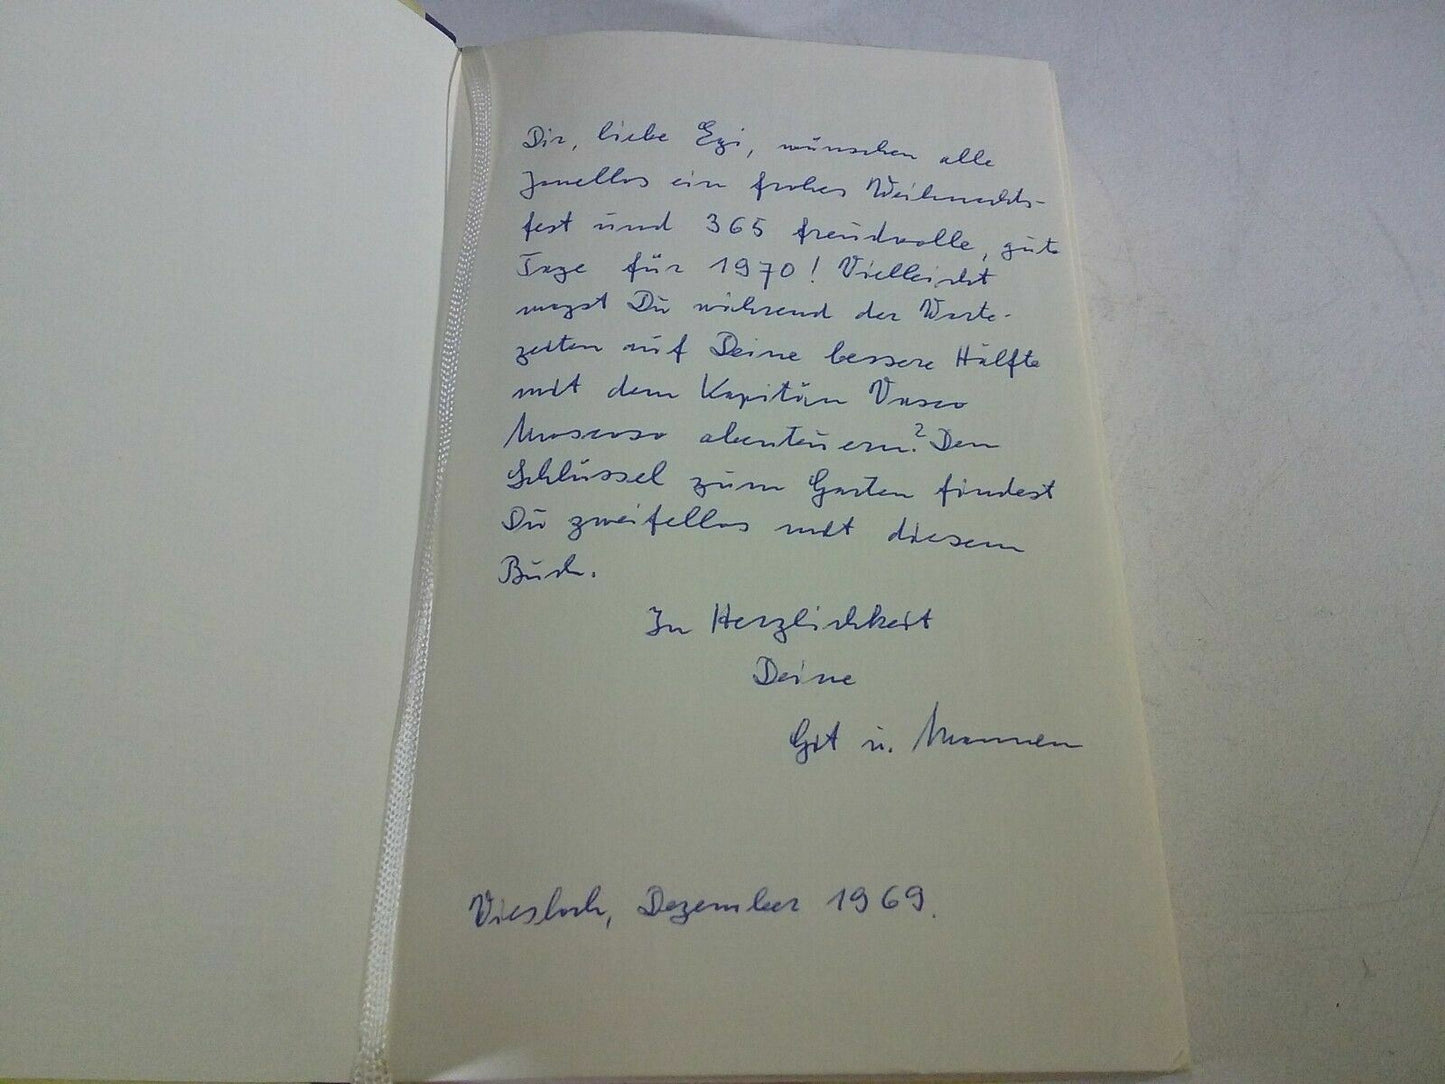 Dir, liebe Egi, wünschen alle
Janellos ein frohes Weihnachts-
fest und 365 freudvolle, gute
Tage für 1970! Vielleicht
magst Du während der Warte-
zeiten auf Deine bessere Hälfte
mit dem Kapitän Vasco
Moscoso abenteuern? Den
Schlüssel zum Garten findest
Du zweifellos mit diesem
Buch.
In Herzlichkeit
Deine
Git u. Mannen
Wiesloch, Dezember 1969.